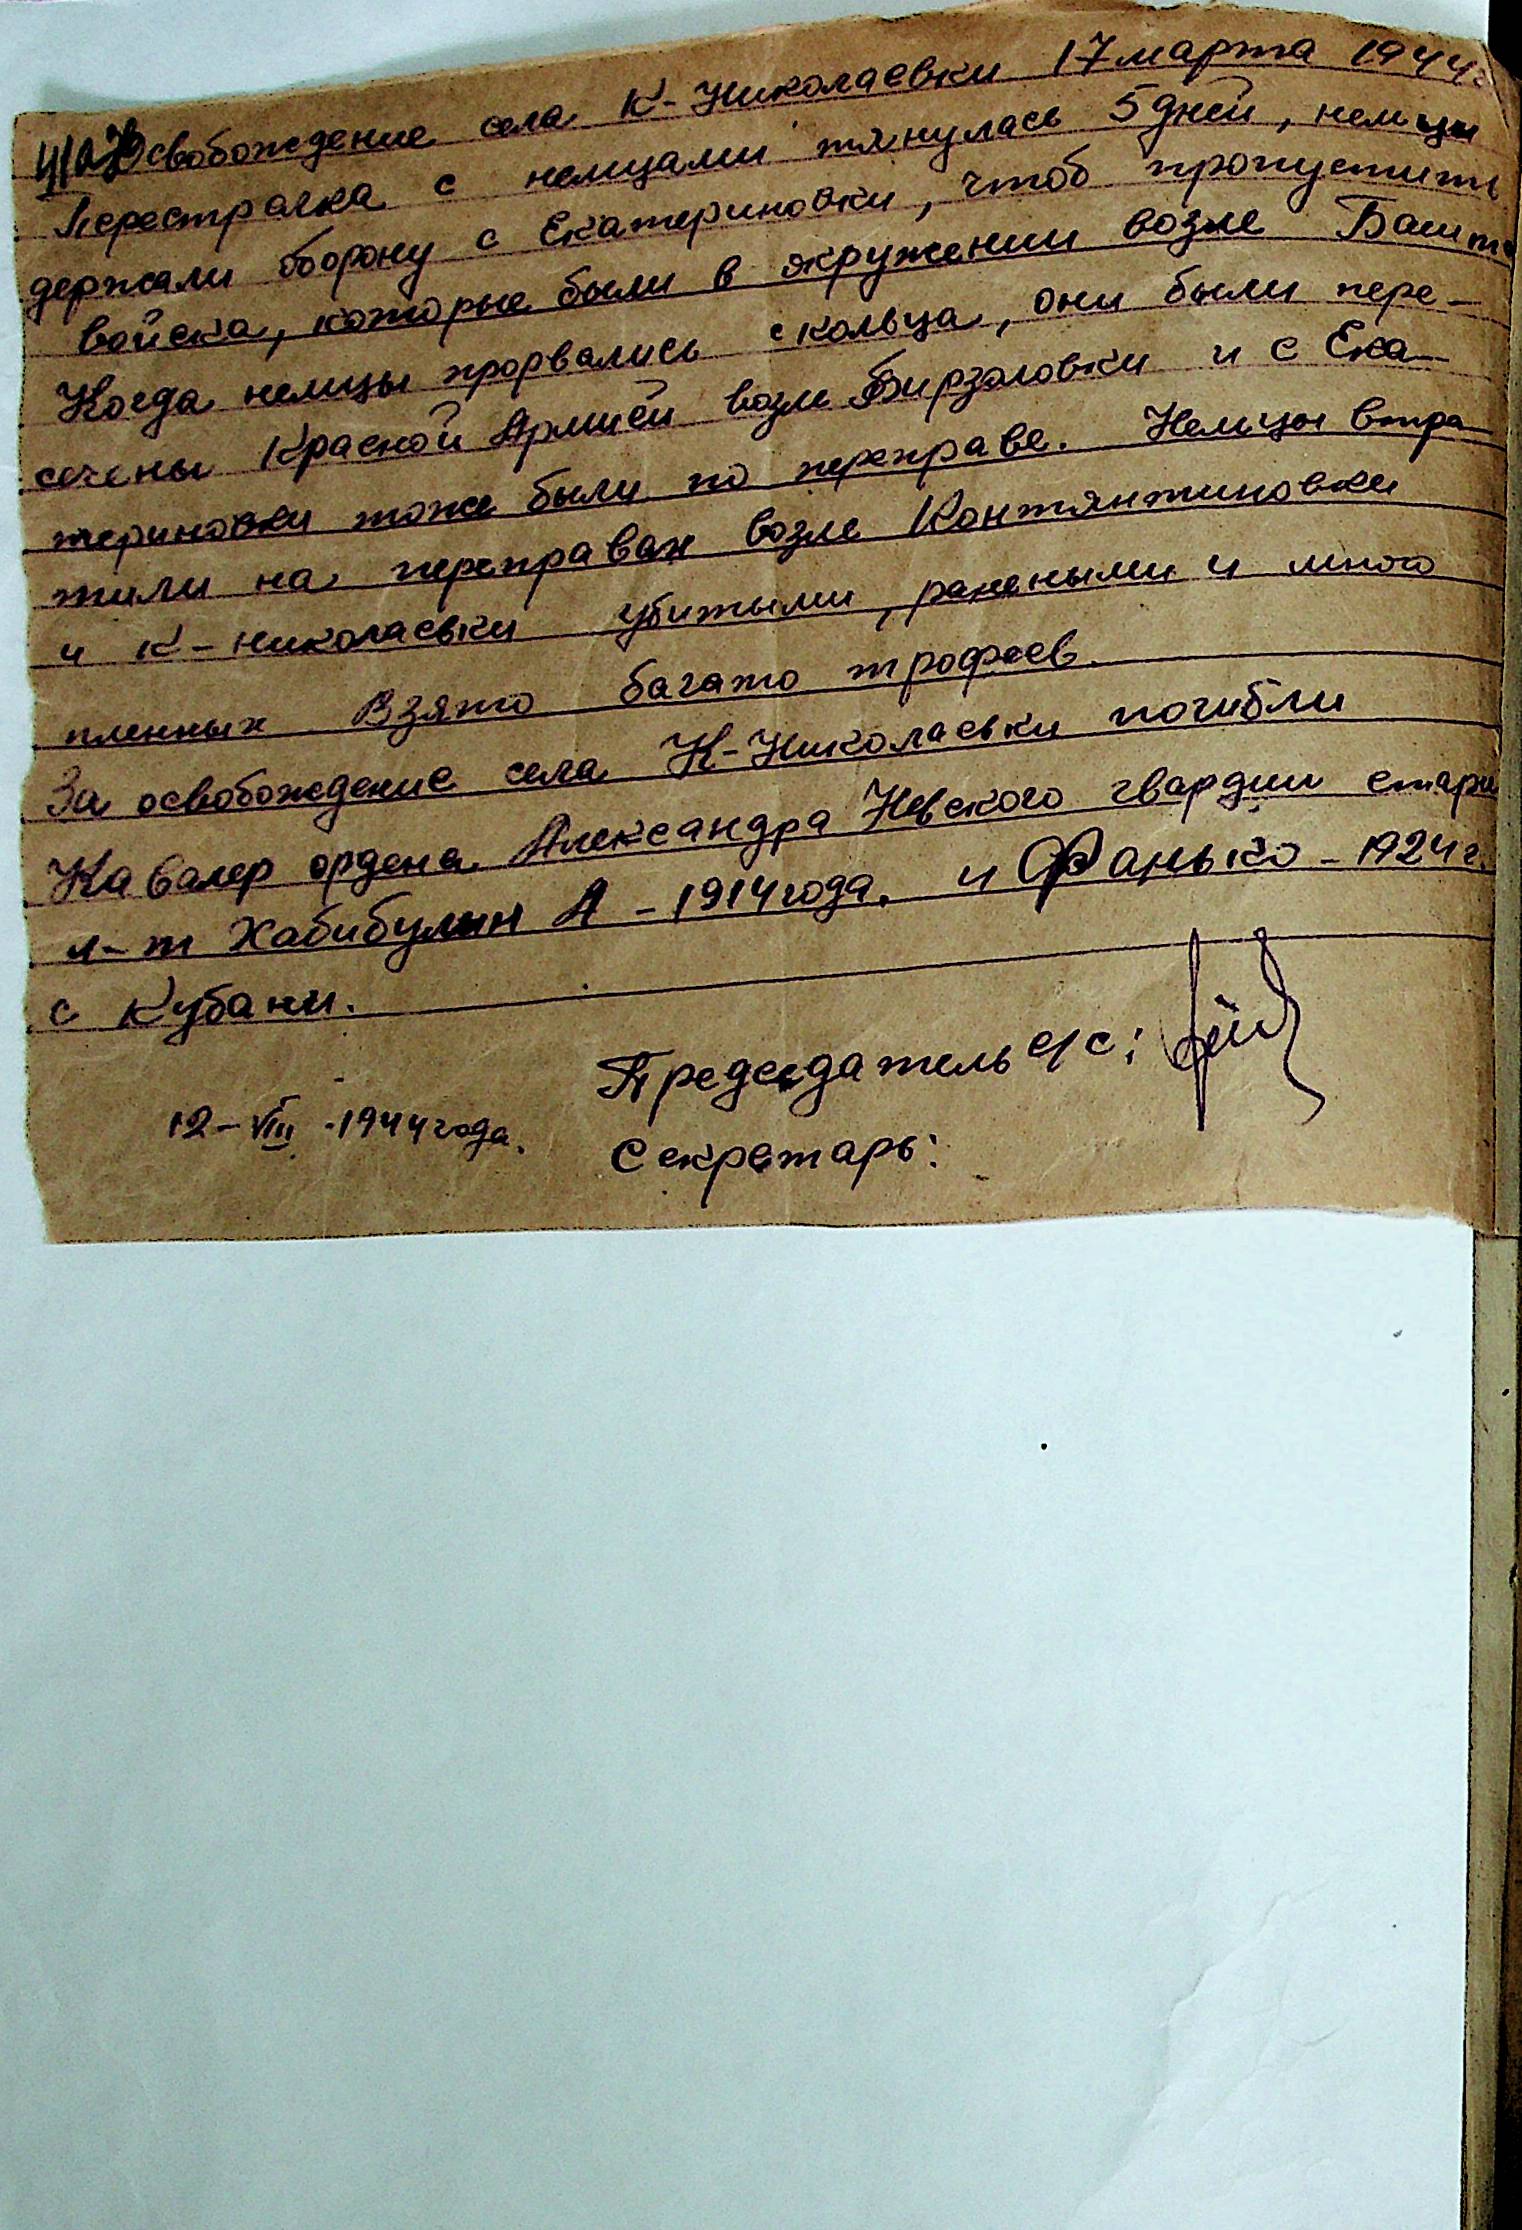 Освобождение села К-Николаевки 17 марта 1944г
Перестралка с немцами тянулась 5 дней, немцы
держали оборону с Екатериновки, чтоб пропустить
войска, которые были в якружении возле Башт
Когда немцы прорвались с кольца, они были пере-
сечены Красной Армией возле Бирзоловки и с Ека-
териновки тоже были по переправе. Немцы втра-
тили на переправах возле Контянтиновки
и К-николаевки убитыми, ранеными и много
пленных Взято багато трофеев.
За освобождение села К-Николаевки погибли
Кавалер ордена Александра Невского гвардии старш
л-т Хабибулин А - 1914 года. и Фанько - 1924 г.
с Кубани.
Председатель с/с:
12-VIII-1944 года.
Секретарь: